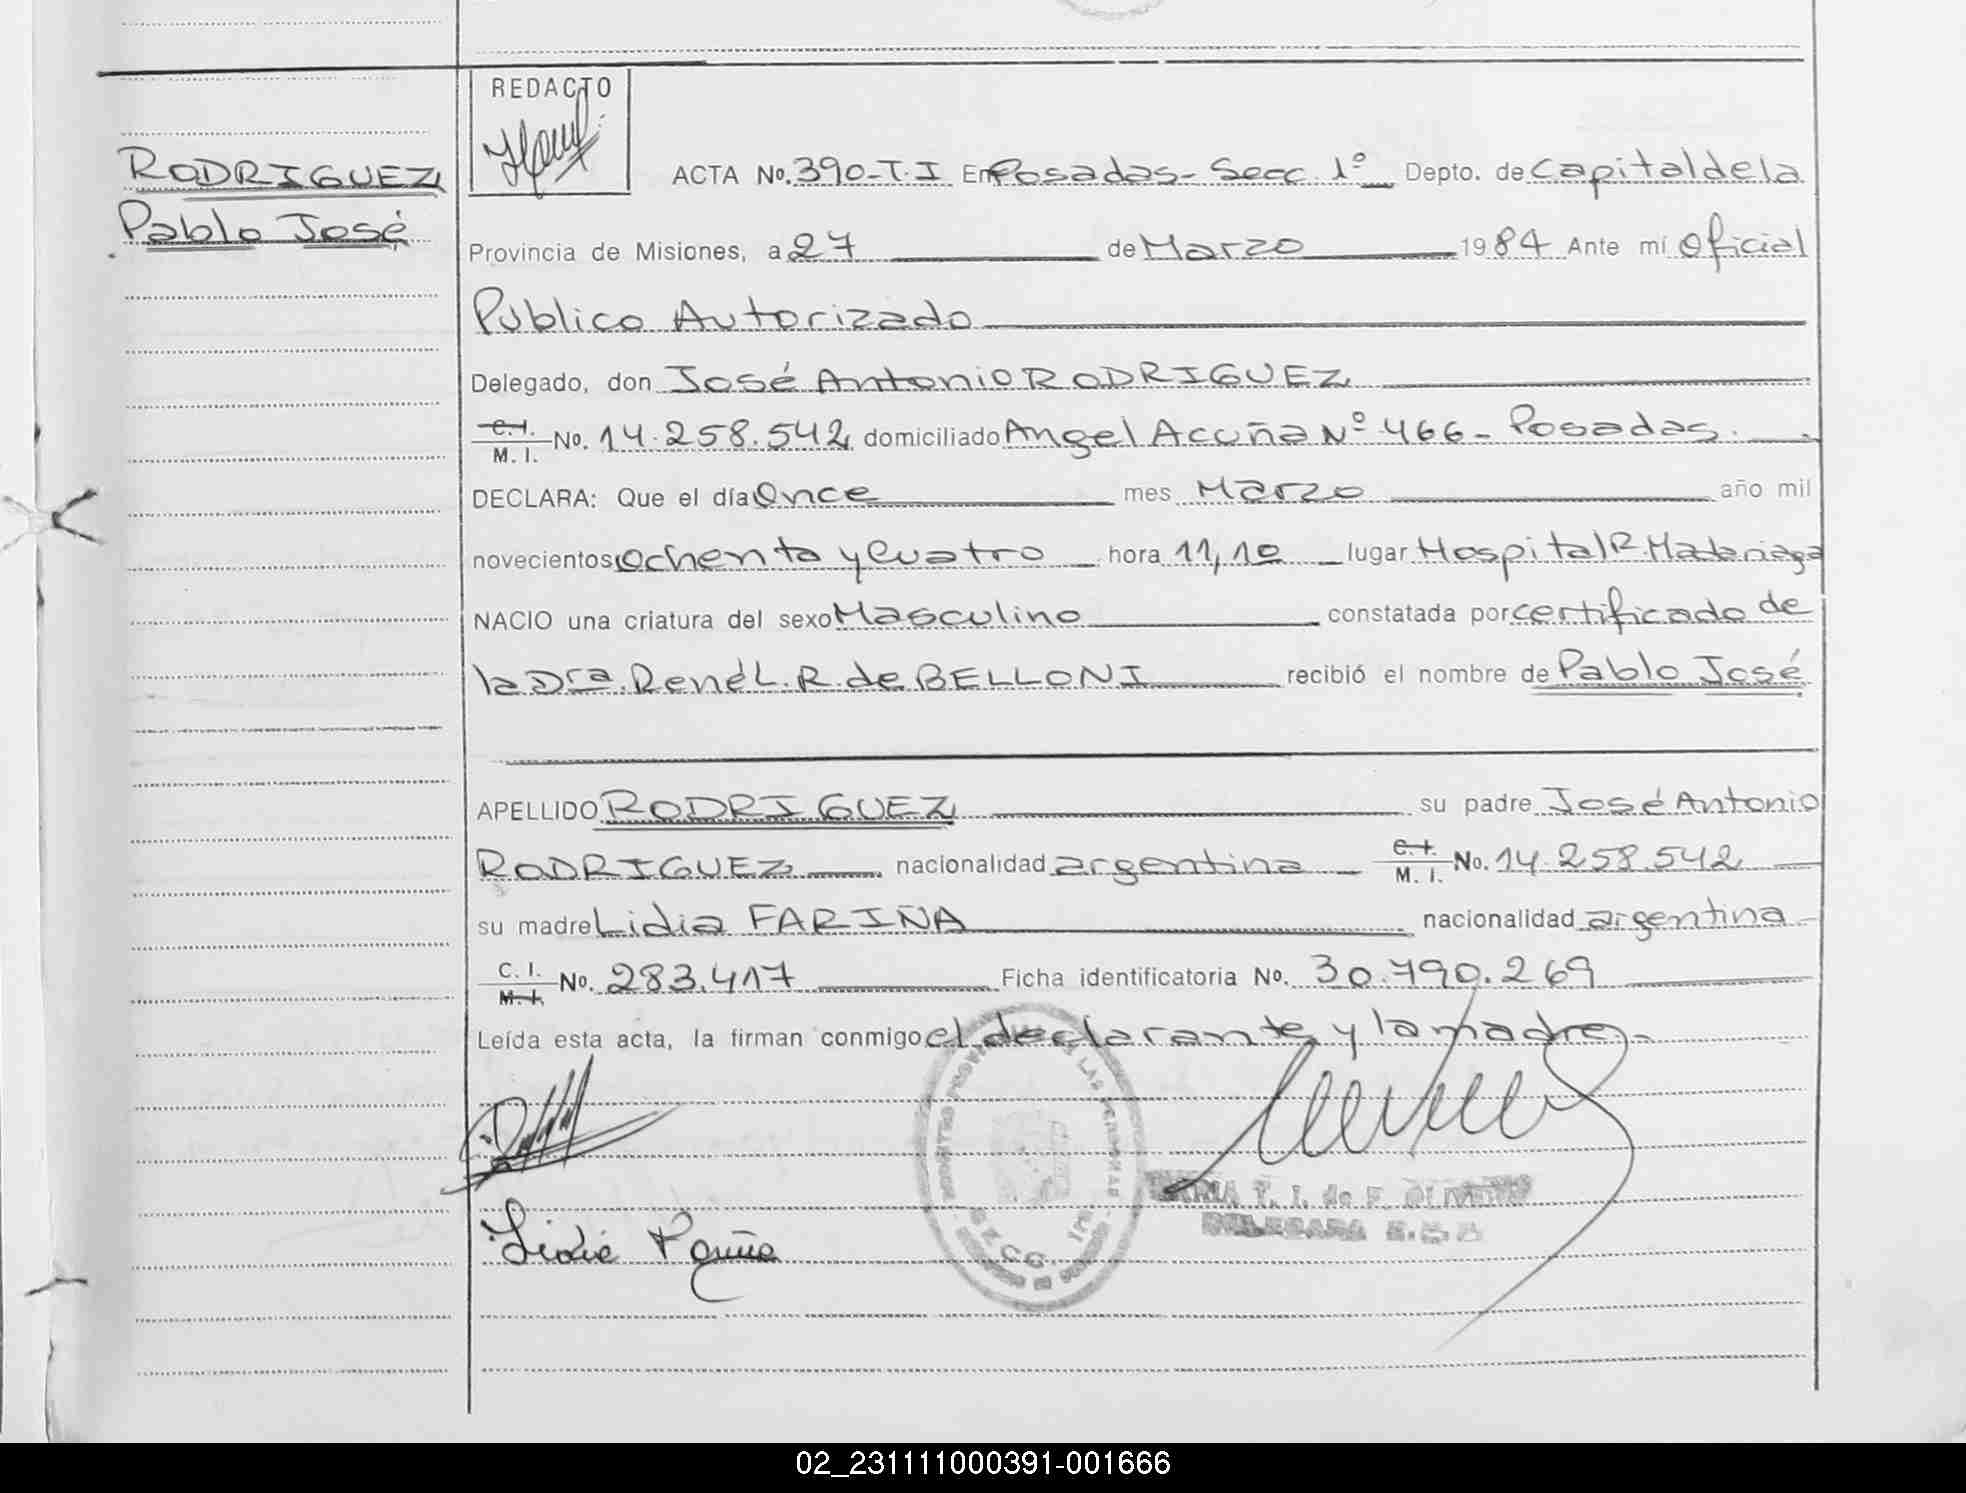 REDACTO
RODRIGUEZ
Pablo José
ACTA No. 390-T.I En Posadas - Secc. 1º Depto. de Capital de la
Provincia de Misiones, a 27 de Marzo 1984 Ante mí Oficial
Publico Autorizado
Delegado, don José Antonio RODRIGUEZ
C.I.
M. I. No. 14.258.542 domiciliado Angel Acuña Nº 466 - Posadas.
DECLARA: Que el día Once mes Marzo año mil
novecientos ochenta y Cuatro hora 11,10 lugar Hospital R. Madariaga
NACIO una criatura del sexo Masculino constatada por certificado de
la Dra. René L. R. de BELLONI recibió el nombre de Pablo José
APELLIDO RODRIGUEZ su padre José Antonio
RODRIGUEZ nacionalidad argentina C.I.
M. I. No. 14.258.542
su madre Lidia FARIÑA nacionalidad argentina
C. I.
M. I. No. 283.417 Ficha identificatoria No. 30.790.269
Leída esta acta, la firman conmigo el declarante y la madre.-
Lidia Fariña
02_231111000391-001666